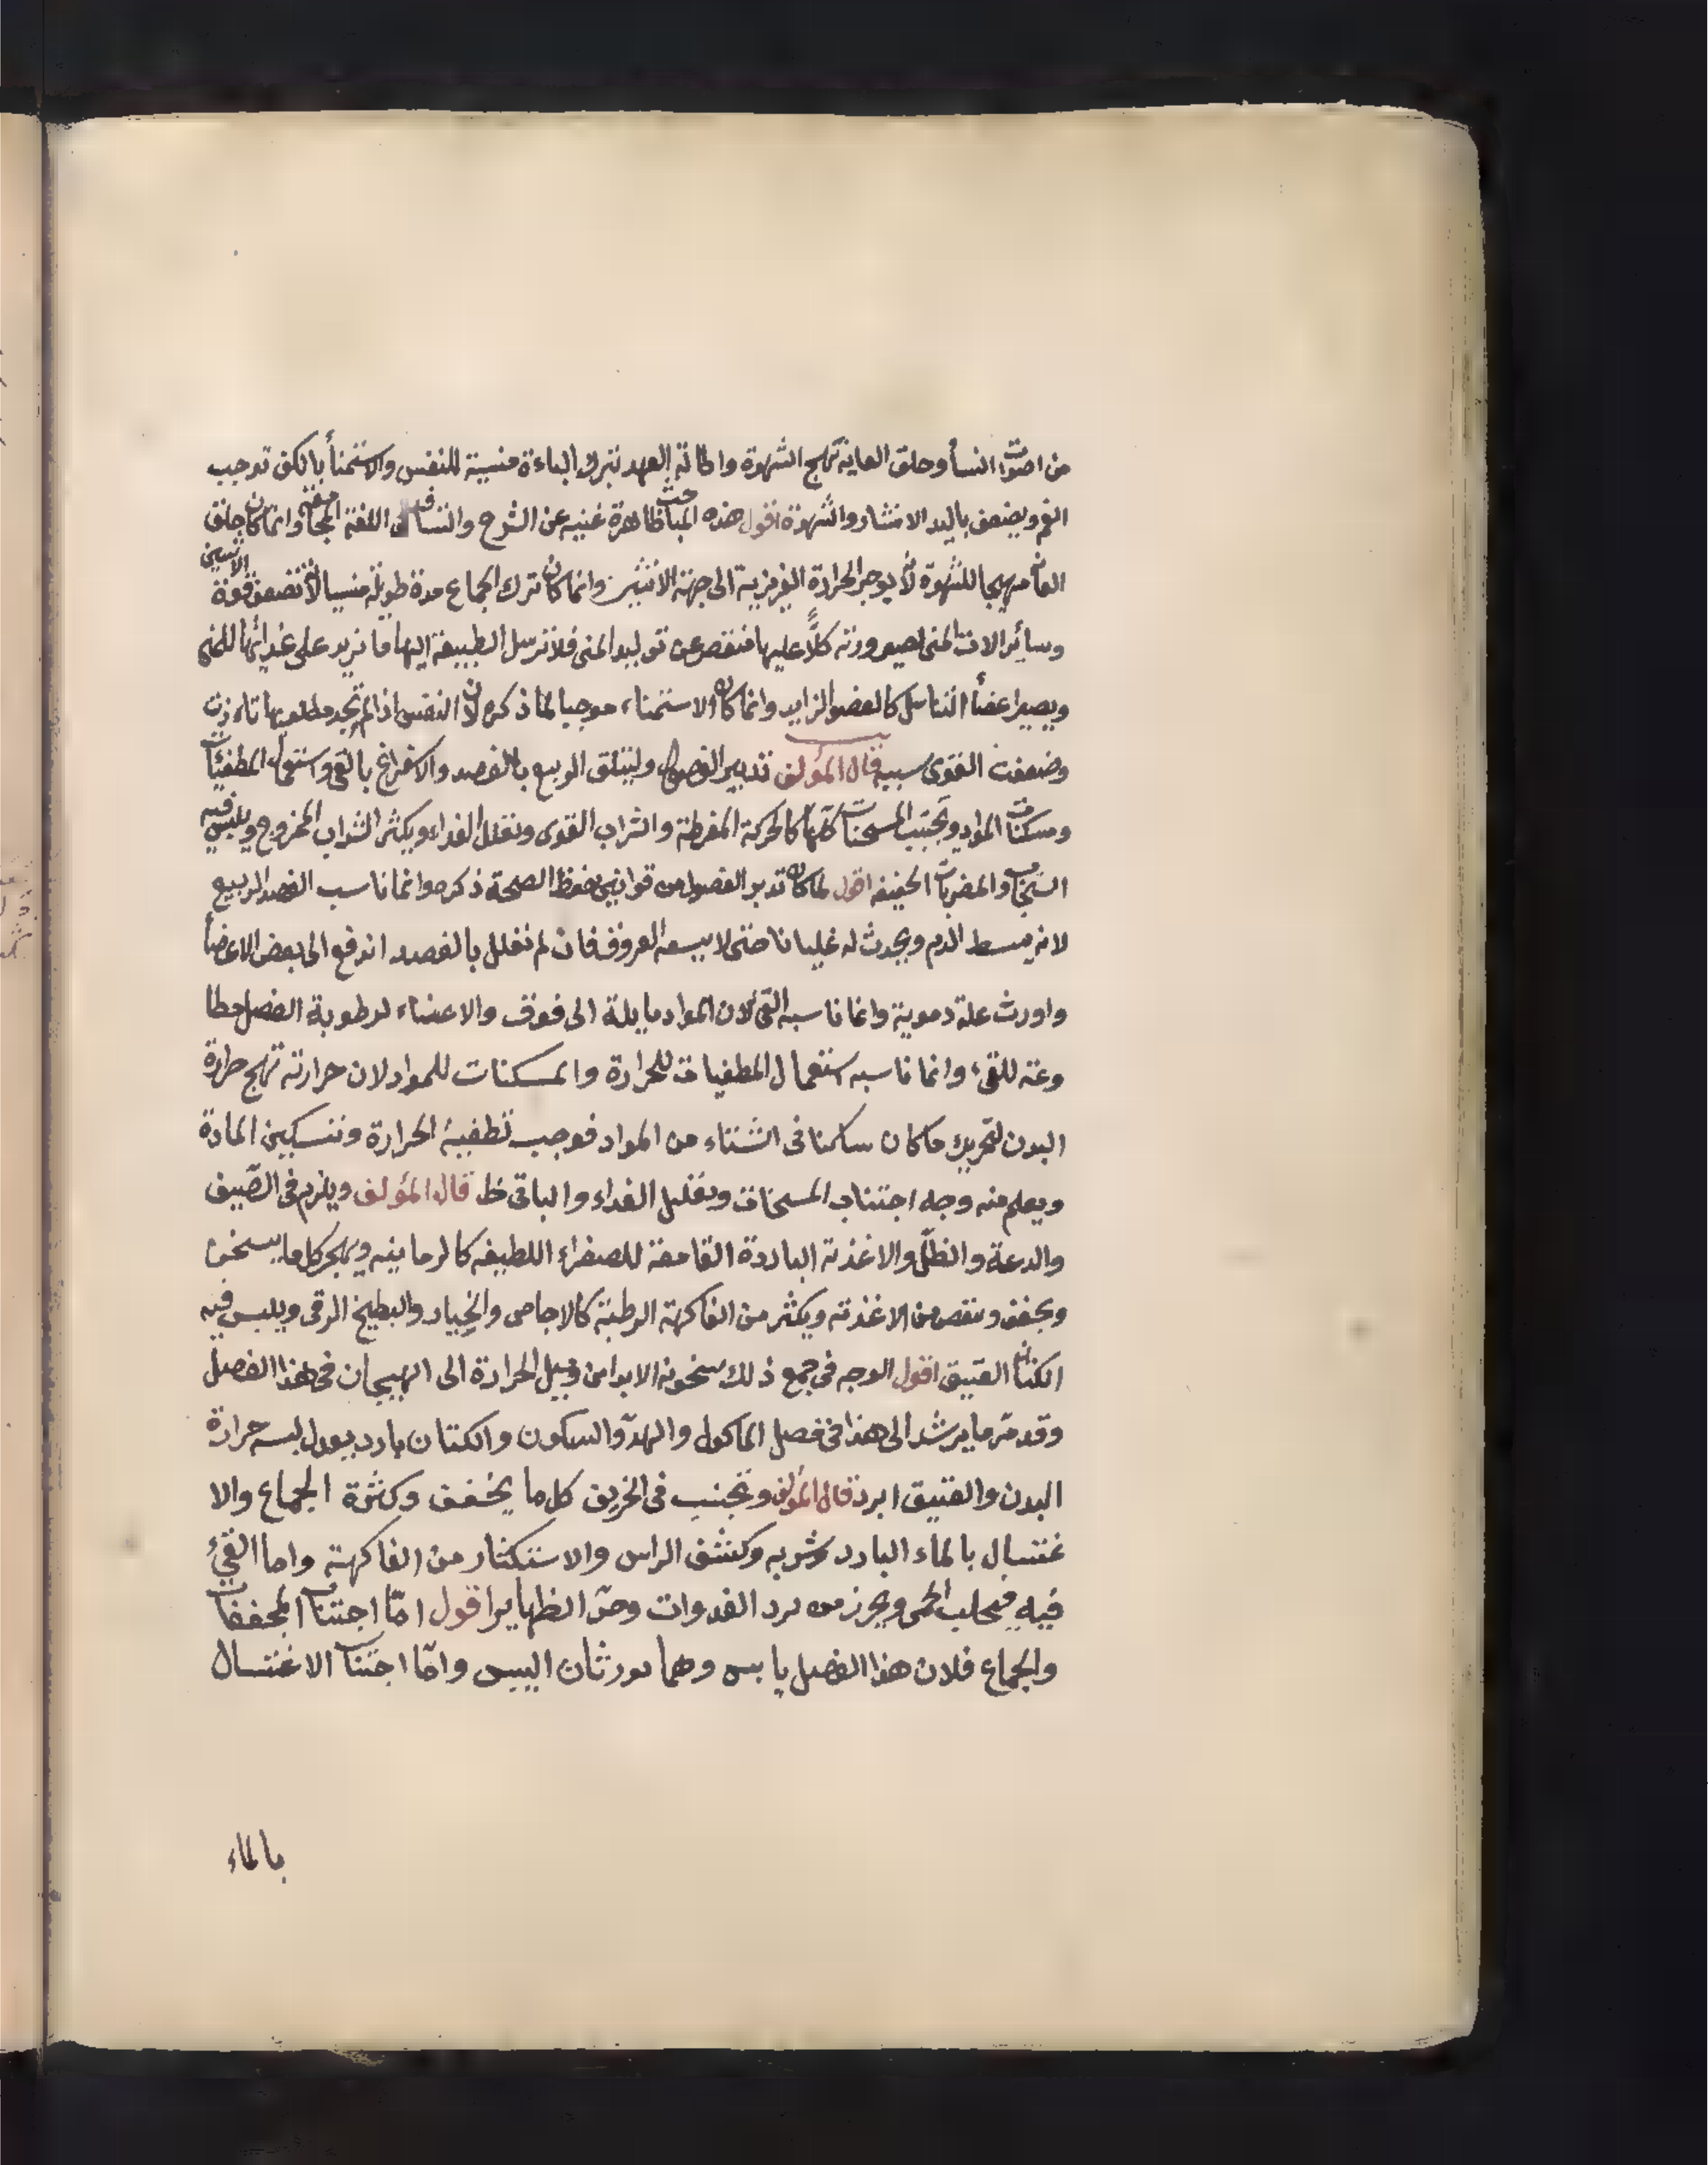 من اصوات النسأ وحلق العانة تهيج الشهوة واطالة العهد بترك الباءة منسية للنفس والاستمنأ بالكف توجب
الغم ويضعف باليد الانتشار والشهوة اقول هذه المباحث ظاهرة غنية عن الشرح والتسافد فى اللغة المجامعة وانما كان حلق
العانة مهيجا للشهوة لأنه يوجه الحرارة الغريزية الى جهة الانثيين وانما كان ترك الجماع مدة طويلة منسيا لأنه تضعف قوة الانثيين
وسائر الات المنى لصيرورته كلًّا عليها فتقصر عن توليد المنى فلا ترسل الطبيعة اليها ما تزيد على غذائها للمنى
ويصير اعضأ التناسل كالعضو الزايد وانما كان الاستمناء موجبا لما ذكره لان النفس اذا لم تجد مطلعها تاءذت
وضعفت القوى بسببه قال المؤلف تدبير الفصول وليتلق الربيع بالفصد والاستفراغ بالقى واستعمال المطفئات
ومسكنات المواد ويجتنب المسخنات كلها كالحركة المفرطة والشراب القوى ونقلل الغداء ويكثر الشراب الممزوج ويلبس فيه
السنجاب والمضربات الخفيفه اقول لما كان تدبير الفصول من قوانين حفظ الصحة ذكره وانما ناسب الفصد الربيع
لانه يبسط الدم ويحدث له غليانا حتى لا يسعه العروق فان لم نقلل بالفصد اندفع الى بعض الاعضأ
واورث علة دموية وانما ناسبه القئ لان المواد مايلة الى فوق والاعضاء لرطوبة الفصل مطا
وعته للقىء وانما ناسبه استعمال المطفيات للحرارة والمسكنات للمواد لان حرارته تهيج حرارة
البدن لتحريك ما كان ساكنا فى الشتاء من المواد فوجب تطفية الحرارة وتسكين المادة
ويعلم منه وجه اجتناب المسخنات وتقليل الغداء والباقى ظ قال المؤلف ويلزم فى الصّيف
والدعة والظلّ والاغذية الباردة القامعة للصفراء اللطيفه كالرمانيه ويهجر كل ما يسخن
ويجفف وينقص من الاغذية ويكثر من الفاكهة الرطبة كالاجاص والخيار والبطيخ الرقى ويلبس فيه
الكتان العتيق اقول الوجه فى جمع ذلك سخونة الابدان وميل الحرارة الى الهيجان فى هذا الفصل
وقد مّر ما يرشد الى هذا فى فصل الماكول والهدّو السكون والكتان بارد يعدل لبسه حرارة
البدن والعتيق ابرد قال المؤلف ويجتنب فى الخريف كل ما يخفف وكثرة الجماع والا
غتسال بالماء البارد وشربه وكشف الراس والاستكثار من الفاكهة واما القئ
فيه فيجلب الحمى ويحرز من برد الغدوات وحرّ الظهاير اقول امّا اجتناب المجففات
والجماع فلان هذا الفصل يابس وهما يورثان اليبس وامّا اجتناب الاغتسال
بالماء